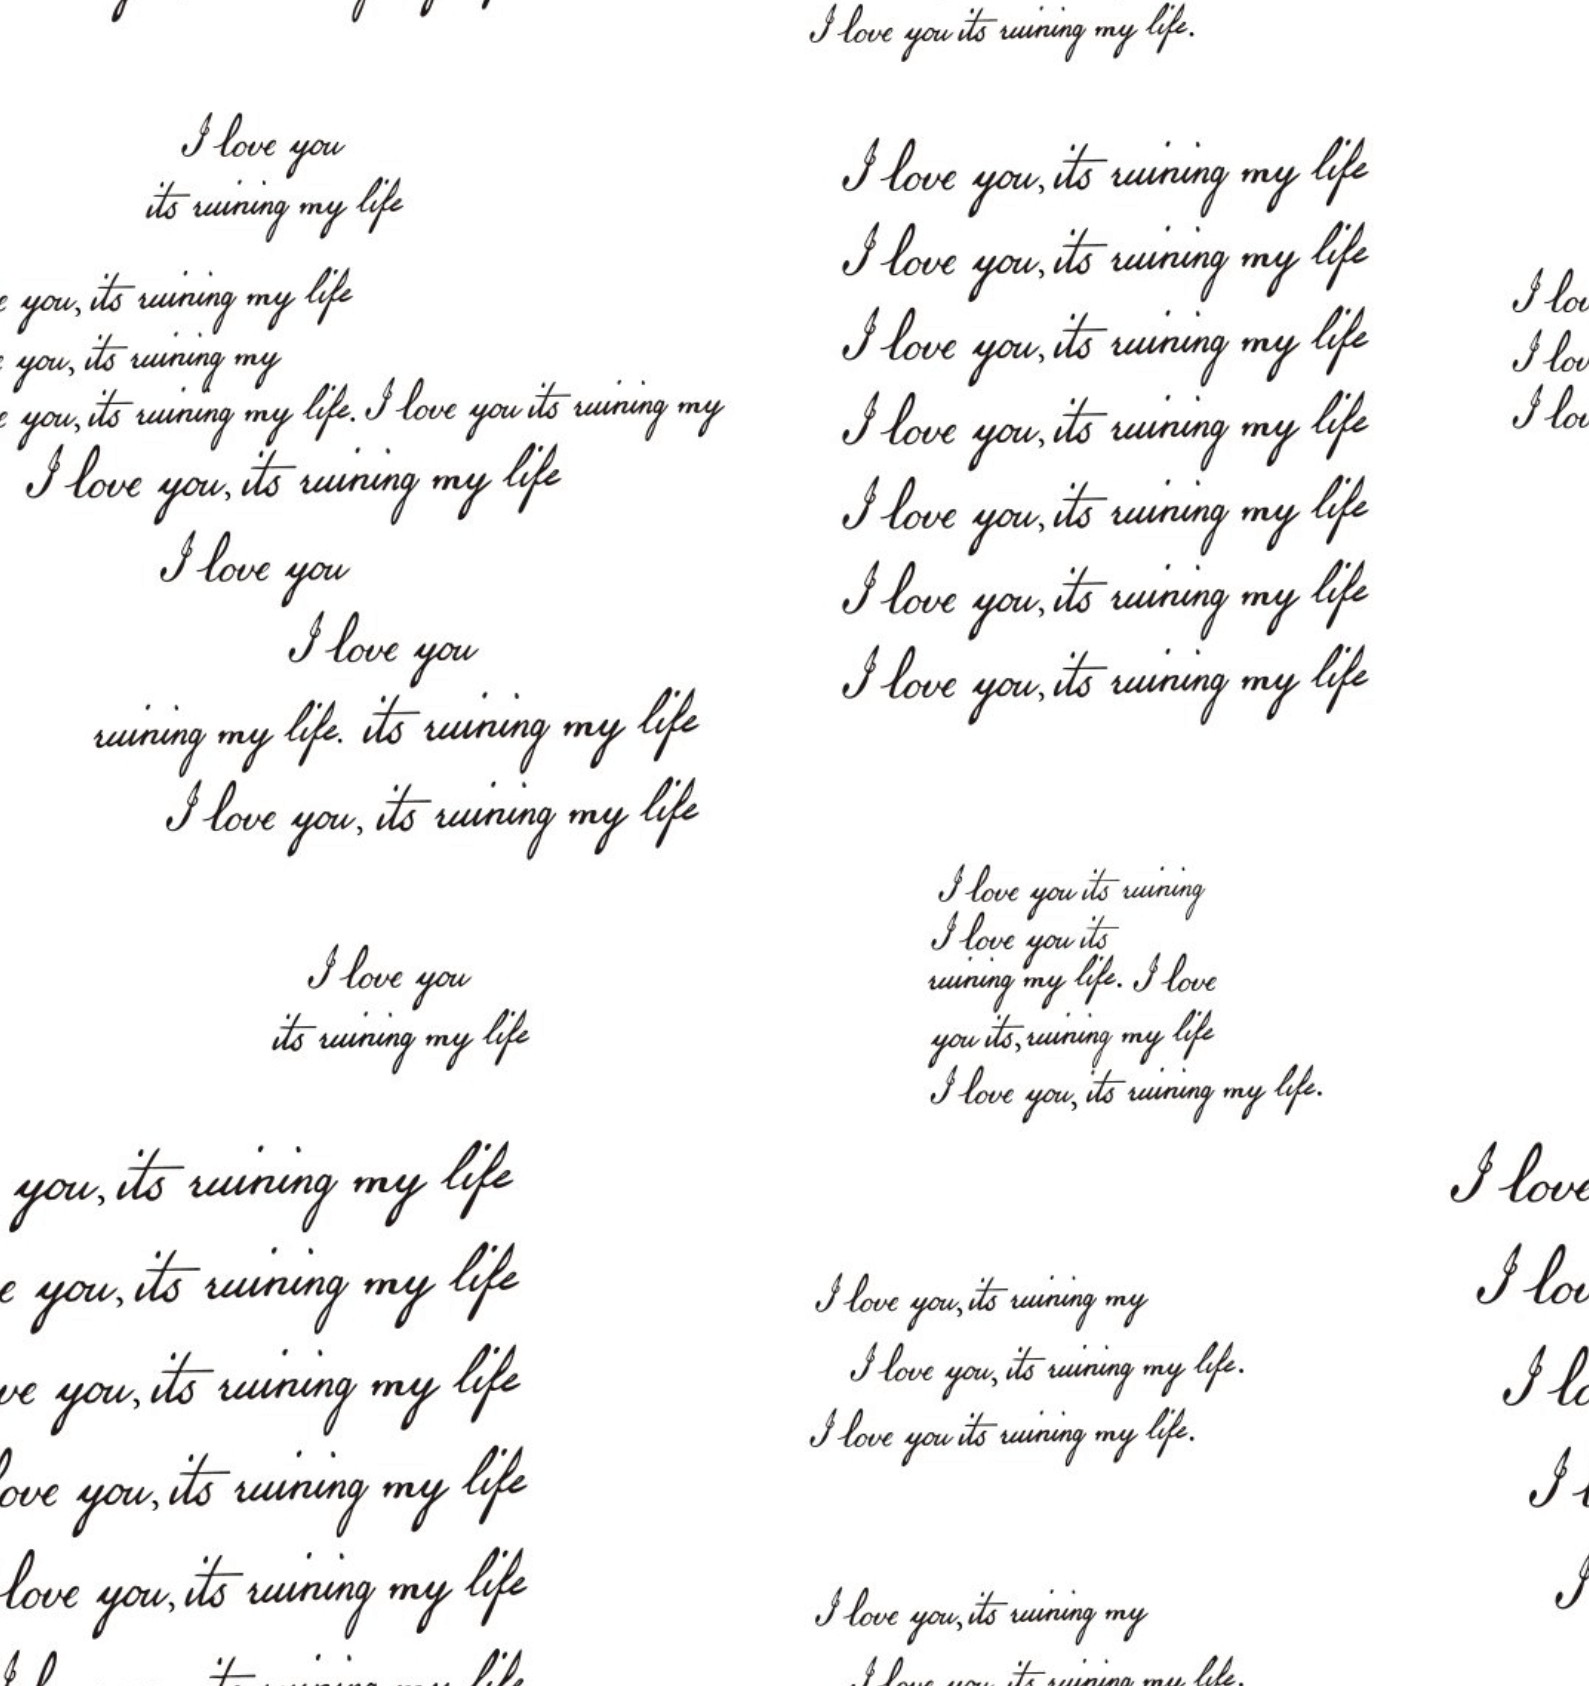 I love you its ruining my life.
I love you
its ruining my life
you, its ruining my life
you, its ruining my
you, its ruining my life. I love you its ruining my
I love you, its ruining my life
I love you
I love you
ruining my life. its ruining my life
I love you, its ruining my life
I love you, its ruining my life
I love you, its ruining my life
I love you, its ruining my life
I love you, its ruining my life
I love you, its ruining my life
I love you, its ruining my life
I love you, its ruining my life
I lov
I lov
I lov
I love you
its ruining my life
I love you its ruining
I love you its
ruining my life. I love
you its, ruining my life
I love you, its ruining my life.
you, its ruining my life
e you, its ruining my life
ve you, its ruining my life
ove you, its ruining my life
love you, its ruining my life
I love you, its ruining my
I love you, its ruining my life.
I love you its ruining my life.
I love you, its ruining my
I love you, its ruining my life.
I love
I lov
I lo
I l
I